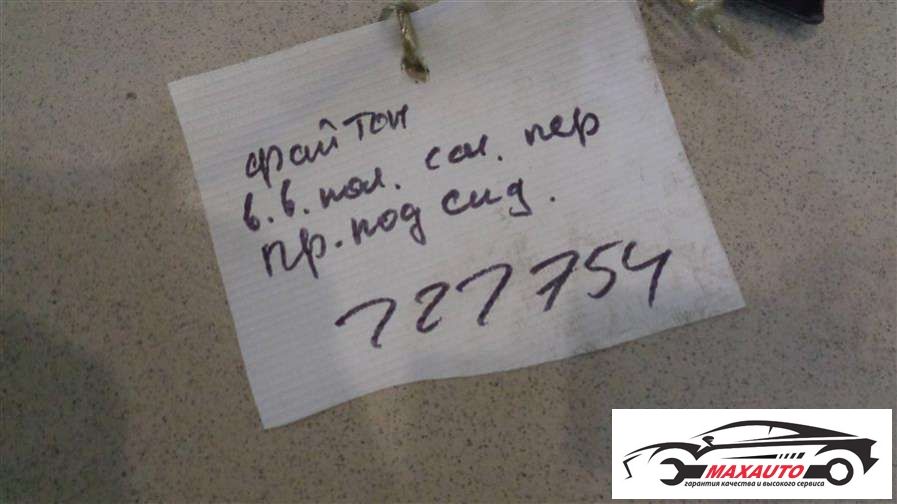 фаитон
в.в. пол. сал. пер
пр. под сид.
727754
MAXAUTO
гарантия качества и высокого сервиса